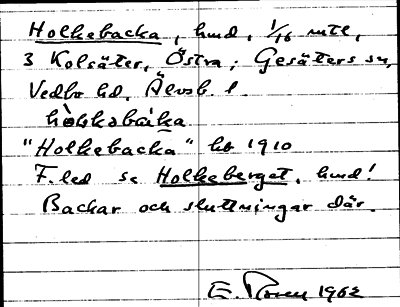 Holkebacka, hmd, 1/16 mtl,
3 Kolsäter, Östra; Gesäters sn,
Vedbo hd, Älvsb. l.
"Holkebacka" hb 1910
F.led se Holkeberget, hmd!
Backar och sluttningar där.
E. Rosen 1962